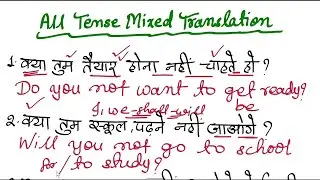 All Tense Mixed Translation
1. क्या तुम तैयार होना नहीं चाहते हो ?
Do you not want to get ready?
I, we-shall-will be
2. क्या तुम स्कूल पढ़ने नहीं जाओगे ?
Will you not go to school
for/to study?